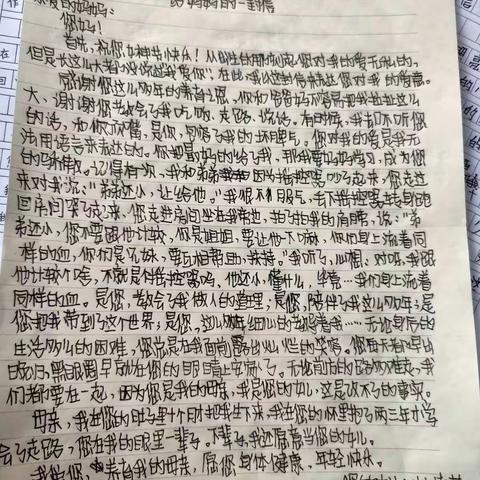 给妈妈的一封信
亲爱的妈妈：
您好！
首先，祝您女神节快乐！从出生的那刻起您对我的爱无私的，
但是长这么大者小没你说过我爱你！在此，我以这封信来表达您对我的爱意。
感谢您这么多年的养育之恩，你和爸爸妈不容易把我拉扯这么
大，谢谢您教会了我吃饭、走路、说话。有时候，我却不听您
的话，和你顶嘴，是您，包容了我的坏脾气。您对我的爱是我无
法用语言来表达的。你把最好的给了我，那我要好好学习，成为您
的骄傲。记得有次，我和弟弟因为抢遥控器吵了起来，您走过
来对我说："弟弟还小，让给他。"我很不服气，丢下遥控器转身跑
回房间哭了起来，您走进房间坐在我旁边，拍拍我的肩膀，说："弟
弟还小，您不要跟他计较，你是姐姐，要让他不嘛，你们身上流着同
样的血，你们是兄妹，要互相帮助、扶持。"我听了，心想：对呀，我跟
他计较个啥，不就是个遥控器吗，他还小，懂什么，毕竟…我们身上流着
同样的血。是您，教会了我做人的道理；是您，陪伴了我这么多年；是
您把我带到了这个世界；是您，这么多年细心的照顾着我……无论身后的
生活多么的困难，您总是在我面前露出灿烂的笑容。您每天都早出
晚归，黑眼圈早就在您的眼睛上安家了。无论前方的路多难走，我
们都要在一起，因为您是我的母亲，我是您的女儿，这是改不了的事实。
母亲，我在您的肚子里十个月才呱呱生下来，我在您的怀里抱了两三年才学
会了走路，您在我的眼里一辈子。下辈子，我还愿意当您的女儿。
我祝您，养育我的母亲，愿您身体健康，年轻快乐。